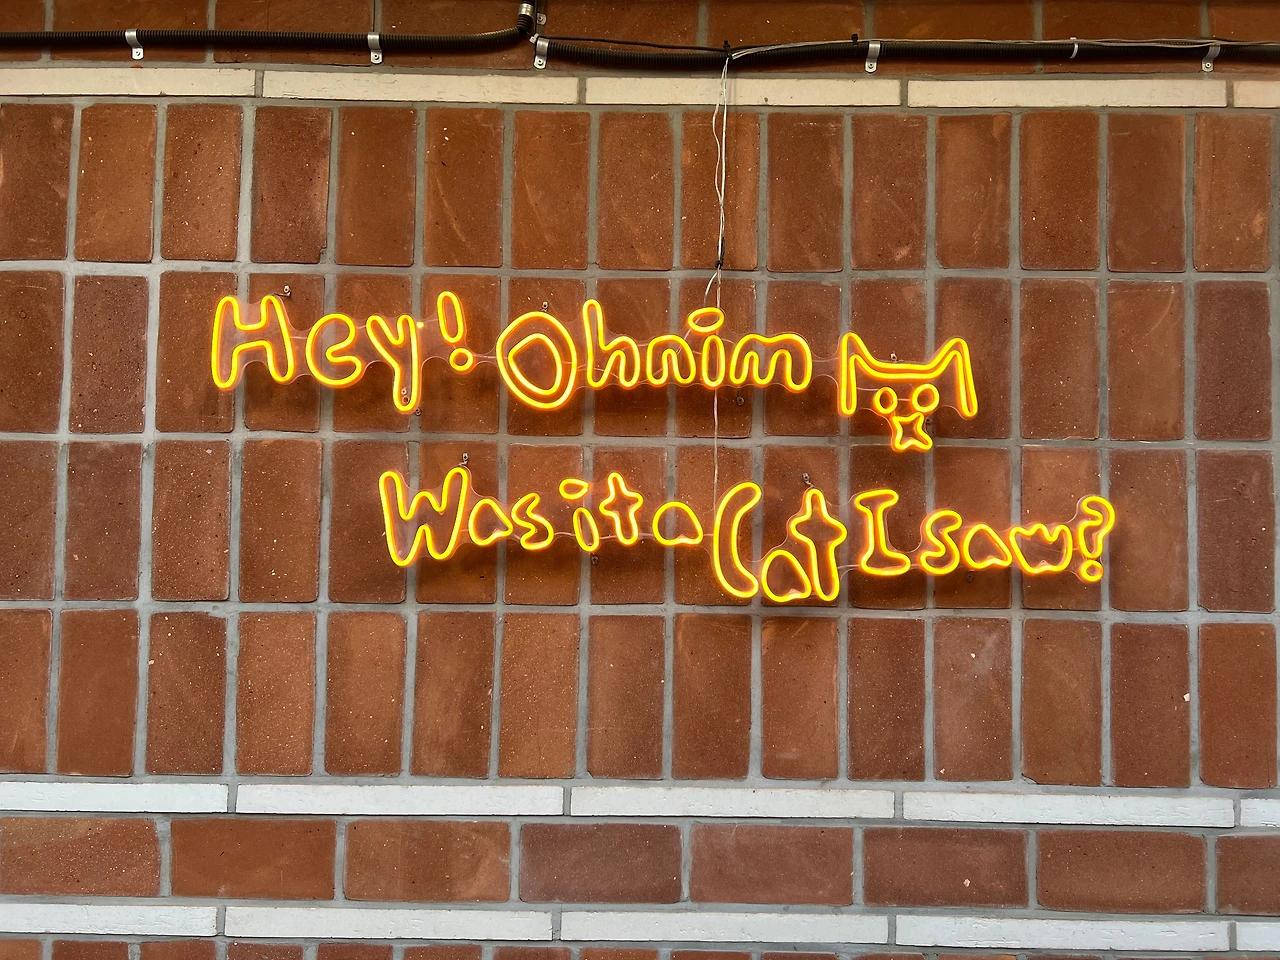 Hey! Ohnim
Was it a Cat I saw?